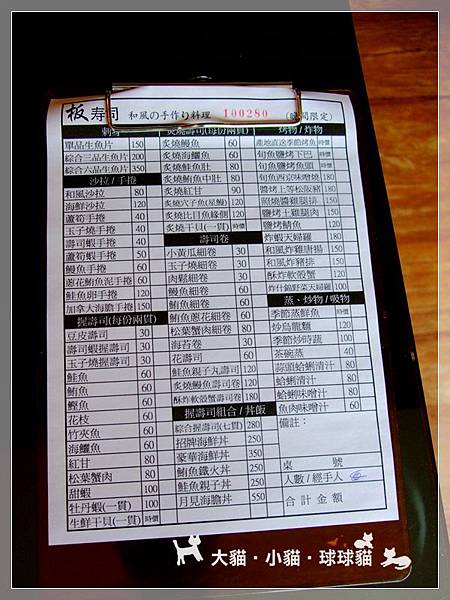 板寿司 和風の手作り料理 100280 (晚間限定)
刺身
單品生魚片 150
綜合三品生魚片 200
綜合六品生魚片 350
沙拉/手捲
和風沙拉 80
海鮮沙拉 120
蘆筍手捲 60
玉子燒手捲 60
壽司蝦手捲 60
蘆筍蝦手捲 60
鰻魚手捲 60
蔥花鮪魚泥手捲 60
鮭魚卵手捲 120
加拿大海膽手捲 150
握壽司(每份兩貫)
豆皮壽司 30
壽司蝦握壽司 30
玉子燒握壽司 30
鮭魚 60
鮪魚 60
鰹魚 60
花枝 60
竹夾魚 60
海鱺魚 60
紅甘 80
松葉蟹肉 80
甜蝦 100
牡丹蝦(一貫) 100
生鮮干貝(一貫) 時價
炙燒壽司(每份兩貫)
炙燒鰻魚 60
炙燒海鱺魚 60
炙燒鮭魚肚 80
炙燒鮪魚中肚 80
炙燒紅甘 90
炙燒穴子魚(星鰻) 120
炙燒比目魚緣側 120
炙燒干貝(一貫) 時價
壽司卷
小黃瓜細卷 30
玉子燒細卷 30
肉鬆細卷 30
鰻魚細卷 60
鮪魚細卷 60
鮪魚蔥花細卷 60
松葉蟹肉細卷 80
海苔卷 30
花壽司 30
鮭魚親子丸壽司 120
炙燒鰻魚壽司卷 120
酥炸軟殼蟹壽司卷 180
握壽司組合/丼飯
綜合握壽司(七貫) 280
招牌海鮮丼 250
豪華海鮮丼 350
鮪魚鐵火丼 250
鮭魚親子丼 250
月見海膽丼 550
烤物/炸物
產地直送季節烤魚 時價
旬魚鹽烤下巴 時價
旬魚鹽烤魚頭 時價
旬魚西京味噌燒 180
醬烤上等松阪豬 180
照燒醬雞腿排 150
鹽烤土雞腿肉 150
鹽烤鯖魚 120
炸蝦天婦羅 180
和風炸雞唐揚 150
和風炸豬排 150
酥炸軟殼蟹 120
炸什錦野菜天婦羅 100
蒸、炒物/吸物
季節蒸鮮魚 時價
炒烏龍麵 120
季節炒時蔬 100
茶碗蒸 40
蒜頭蛤蜊清汁 80
蛤蜊清汁 80
蛤蜊味噌汁 80
魚肉味噌汁 60
備註:
桌 號
人數/經手人
合計金額
大貓·小貓·球球貓